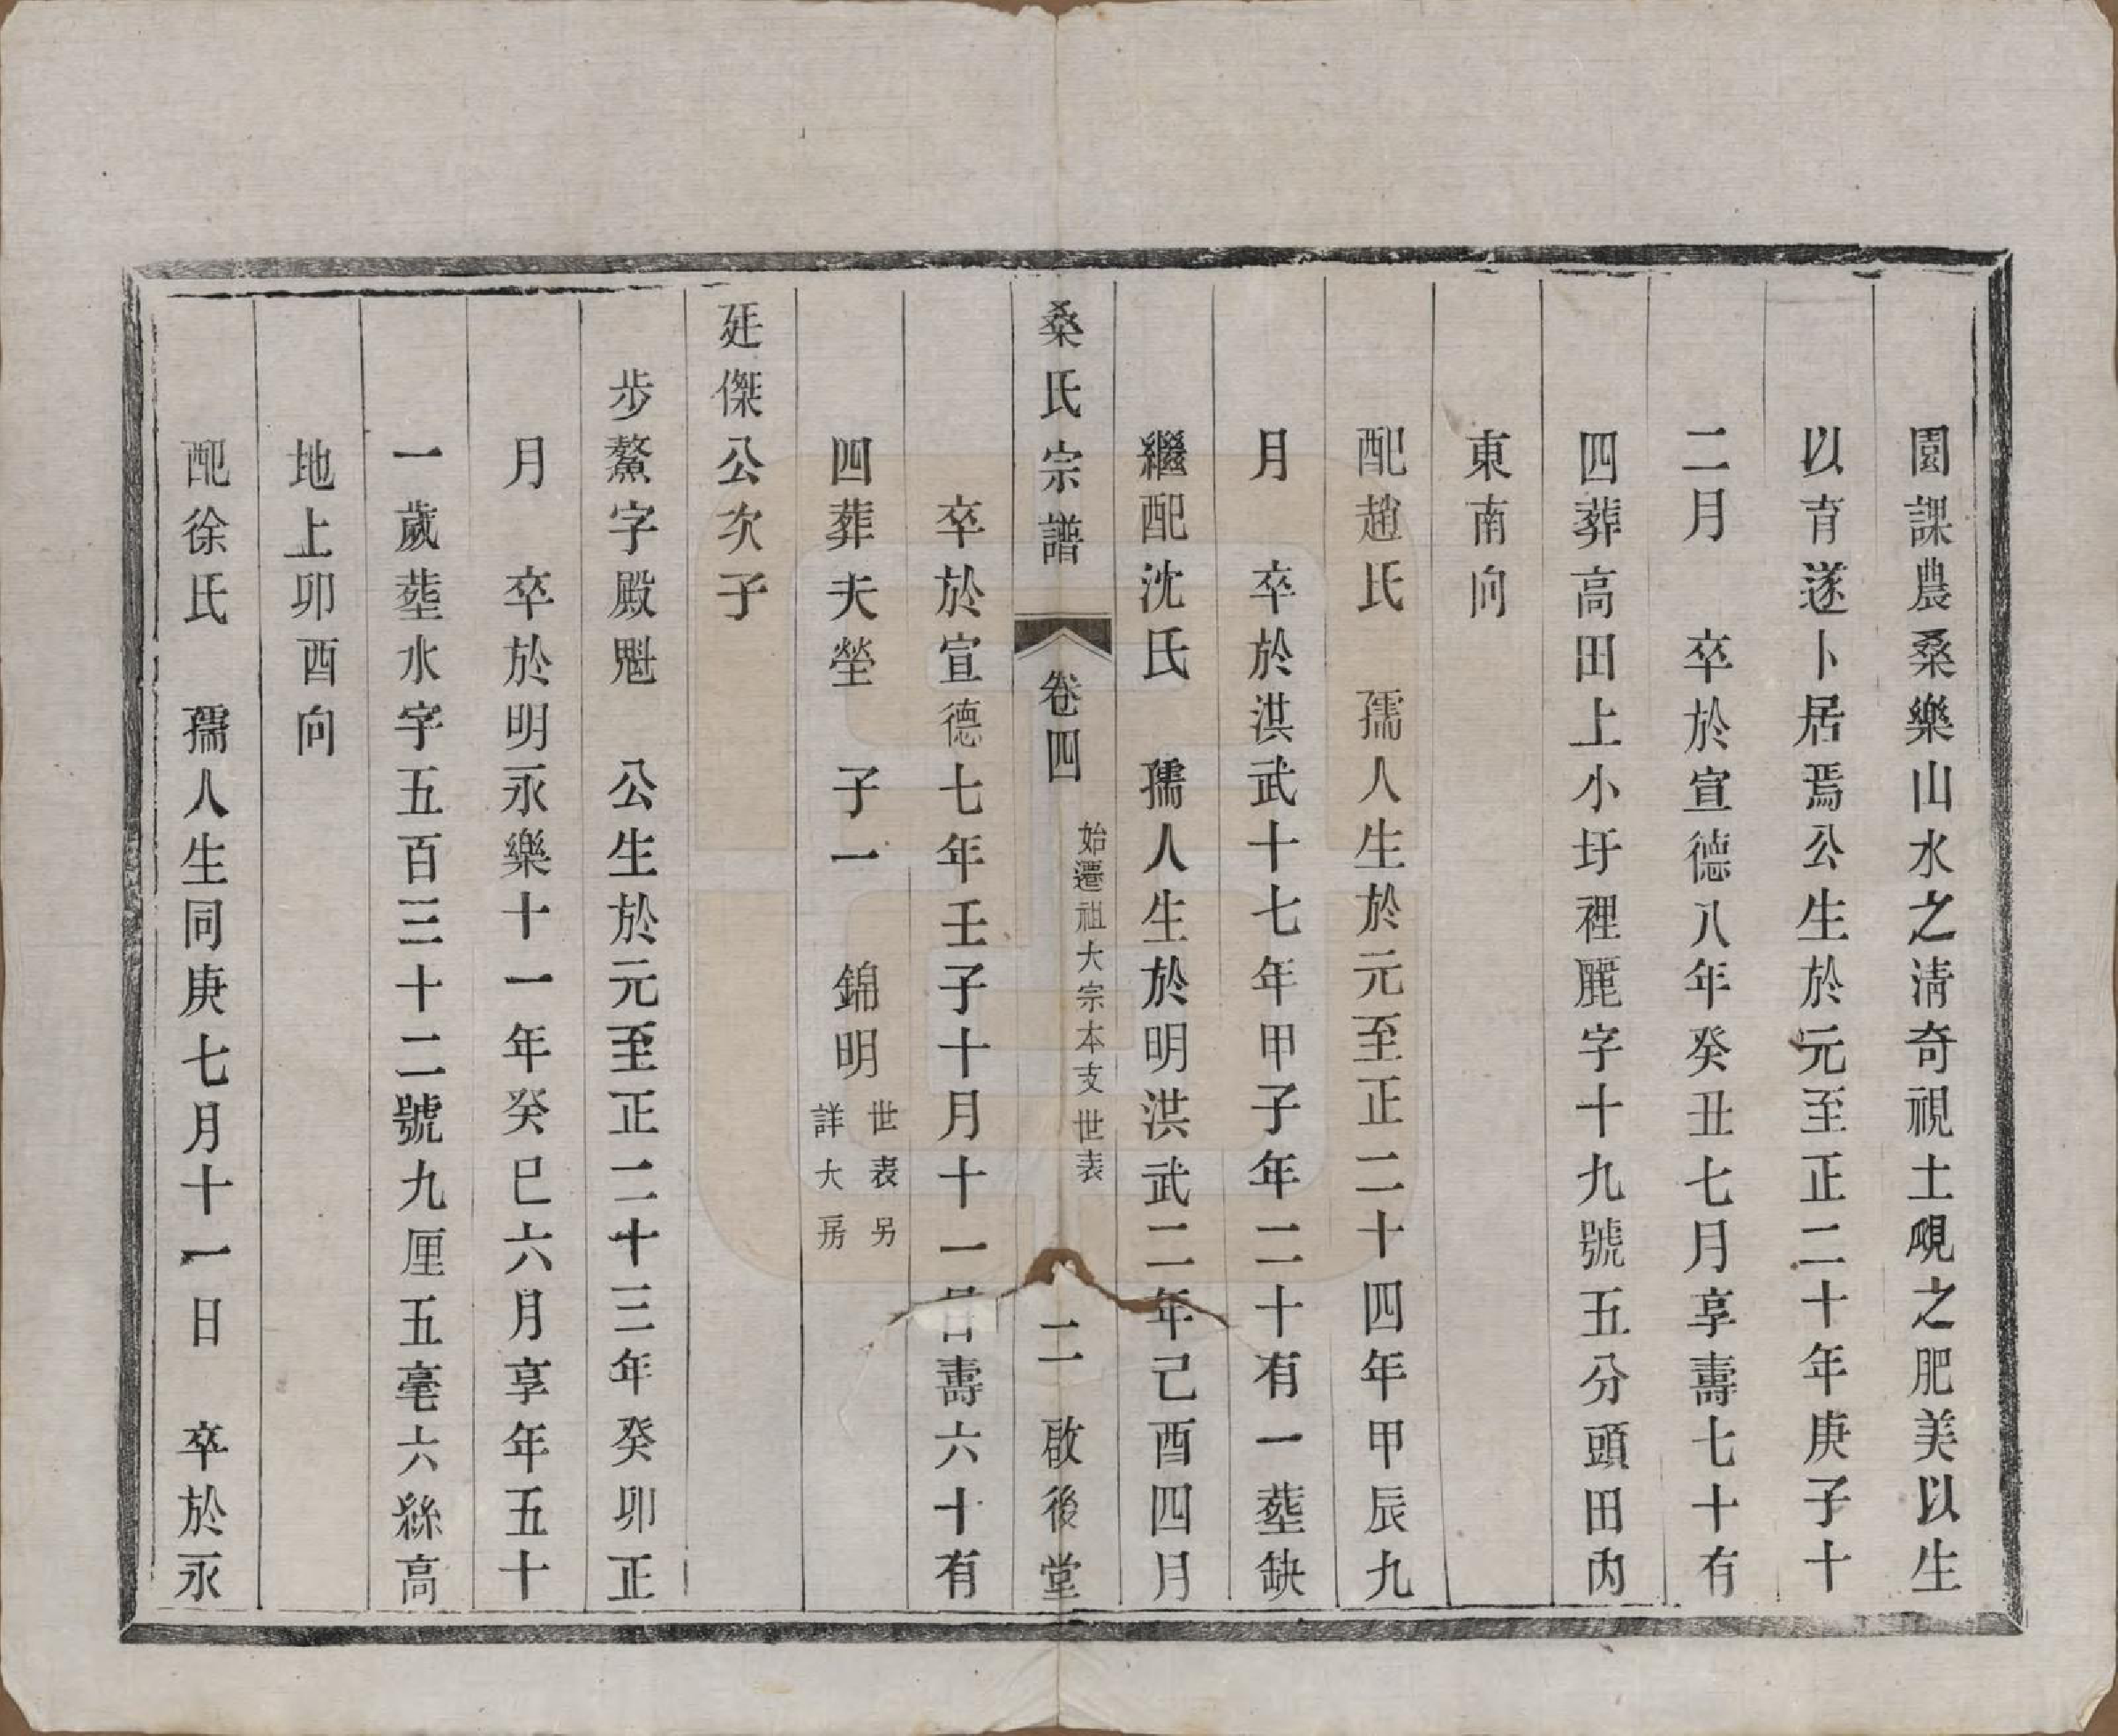 園課農桑樂山水之淸奇視土硯之肥美以生
以育遂卜居焉公生於元至正二十年庚子十
二月　卒於宣德八年癸丑七月享壽七十有
四葬高田上小圩裡麗字十九號五分頭田內
東南向
配趙氏　孺人生於元至正二十四年甲辰九
月　卒於洪武十七年甲子年二十有一塟缺
繼配沈氏　孺人生於明洪武二年己酉四月
桑氏宗譜　卷四　始遷祖大宗本支世表　二　啟後堂
卒於宣德七年壬子十月十一日壽六十有
四葬夫塋　子一　錦明　世表另詳大房
廷傑公次子
步鰲字殿魁　公生於元至正二十三年癸卯正
月　卒於明永樂十一年癸巳六月享年五十
一歲塟水字五百三十二號九厘五毫六絲高
地上卯酉向
配徐氏　孺人生同庚七月十一日　卒於永